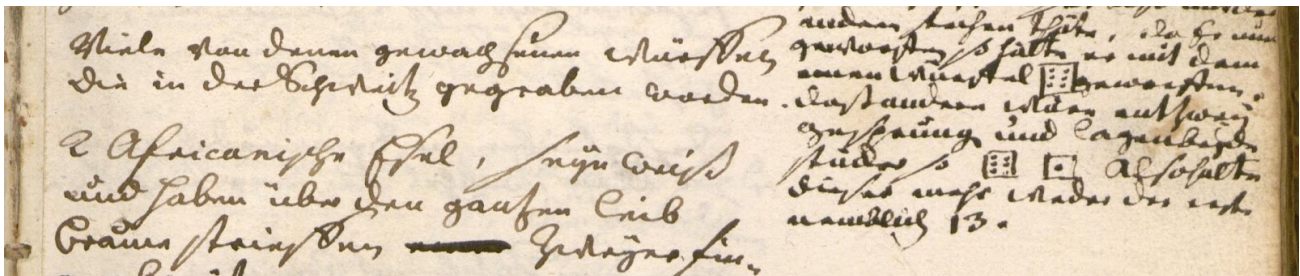 Viele von denen gewachsenen Würffeln
die in der Schweitz gegraben worden.
2 Africanische Esel, seyn weiß
und haben über den gantzen leib
braune streiffen zweyer fin-
andern stechen thäte, da Er nun
geworffen so hätte er mit dem
einen Würffel geworffen,
daß andere wäre entzwey
gesprungen und lagen beyde
stücke so Also hatte
dieser mehr weder der erste
nemblich 13.